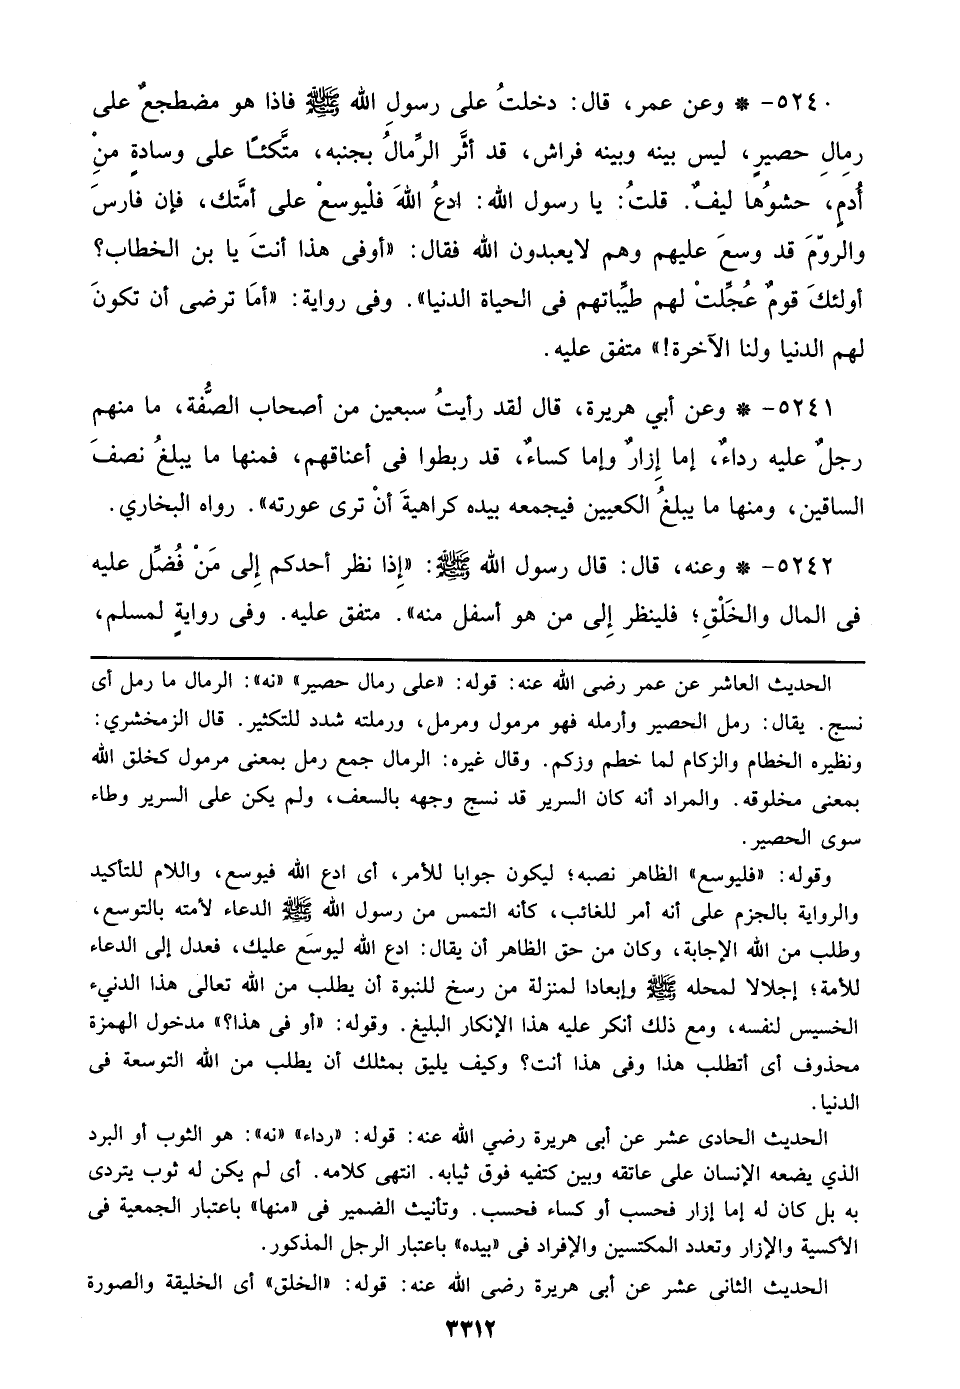 ٥٢٤٠- * وعن عمر، قال: دخلتُ على رسولِ الله ﷺ فاذا هو مضطجعٌ على
رمالِ حصيرٍ، ليس بينه وبينه فراش، قد أثَّر الرِّمالُ بجنبه، متَّكئًا على وسادةٍ منْ
أُدمٍ، حشوُها ليفٌ. قلتُ: يا رسول الله: ادعُ اللهَ فلْيوسعْ على أمَّتك، فإن فارسَ
والرومَّ قد وسعَ عليهم وهم لايعبدون الله فقال: «أوفى هذا أنتَ يا بن الخطاب؟
أولئكَ قومٌ عُجِّلتْ لهم طيِّباتهم فى الحياة الدنيا». وفى رواية: «أمَا ترضى أن تكونَ
لهم الدنيا ولنا الآخرة!» متفق عليه.
٥٢٤١- * وعن أبي هريرة، قال لقد رأيتُ سبعين من أصحاب الصُّفة، ما منهم
رجلٌ عليه رداءٌ، إما إزارٌ وإما كساءٌ، قد ربطوا فى أعناقهم، فمنها ما يبلغُ نصفَ
الساقين، ومنها ما يبلغُ الكعبين فيجمعه بيده كراهيةَ أنْ ترى عورته». رواه البخاري.
٥٢٤٢- * وعنه، قال: قال رسول الله ﷺ: «إِذا نظر أحدكم إِلى مَنْ فُضِّل عليه
فى المال والخَلْقِ؛ فلينظر إِلى من هو أسفل منه». متفق عليه. وفى روايةٍ لمسلم،
الحديث العاشر عن عمر رضى الله عنه: قوله: «على رمال حصير» «نه»: الرمال ما رمل أى
نسج. يقال: رمل الحصير وأرمله فهو مرمول ومرمل، ورملته شدد للتكثير. قال الزمخشري:
ونظيره الخطام والزكام لما خطم وزكم. وقال غيره: الرمال جمع رمل بمعنى مرمول كخلق الله
بمعنى مخلوقه. والمراد أنه كان السرير قد نسج وجهه بالسعف، ولم يكن على السرير وطاء
سوى الحصير.
وقوله: «فليوسع» الظاهر نصبه؛ ليكون جوابا للأمر، أى ادع الله فيوسع، واللام للتأكيد
والرواية بالجزم على أنه أمر للغائب، كأنه التمس من رسول الله ﷺ الدعاء لأمته بالتوسع،
وطلب من الله الإجابة، وكان من حق الظاهر أن يقال: ادع الله ليوسَع عليك، فعدل إلى الدعاء
للأمة؛ إجلالا لمحله ﷺ وإبعادا لمنزلة من رسخ للنبوة أن يطلب من الله تعالى هذا الدنيء
الخسيس لنفسه، ومع ذلك أنكر عليه هذا الإنكار البليغ. وقوله: «أو فى هذا؟» مدخول الهمزة
محذوف أى أتطلب هذا وفى هذا أنت؟ وكيف يليق بمثلك أن يطلب من الله التوسعة فى
الدنيا.
الحديث الحادى عشر عن أبى هريرة رضي الله عنه: قوله: «رداء» «نه»: هو الثوب أو البرد
الذي يضعه الإنسان على عاتقه وبين كتفيه فوق ثيابه. انتهى كلامه. أى لم يكن له ثوب يتردى
به بل كان له إما إزار فحسب أو كساء فحسب. وتأنيث الضمير فى «منها» باعتبار الجمعية فى
الأكسية والإزار وتعدد المكتسين والإفراد فى «بيده» باعتبار الرجل المذكور.
الحديث الثانى عشر عن أبى هريرة رضى الله عنه: قوله: «الخلق» أى الخليقة والصورة
٣٣١٢